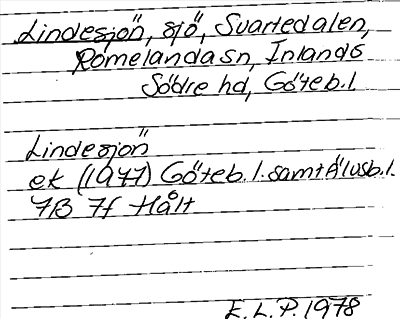 Lindesjön, sjö, Svartedalen,
Romelanda sn, Inlands
Södre hd, Göteb. l.
Lindesjön
ek (1977) Göteb. l. samt Älvsb. l.
7B 7f Hålt
E. L. P. 1978